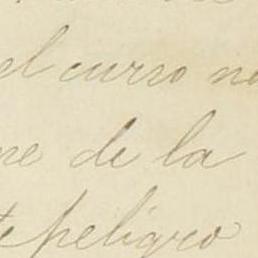 el curso no
me de la
te peligro